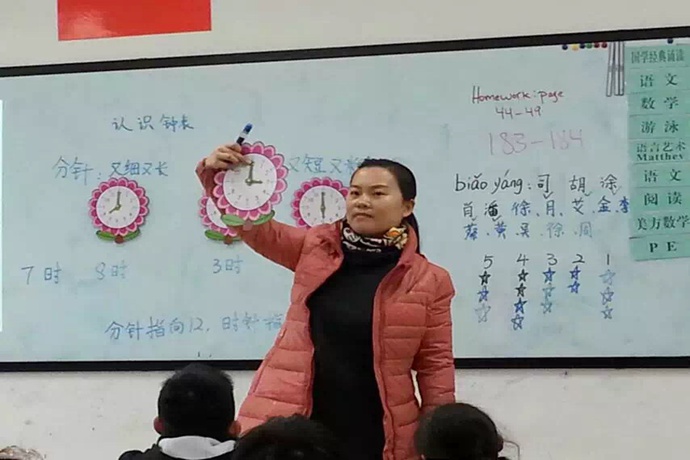 认识钟表
分针:又细又长
又短又
7时
8时
3时
分针指向12,时针指
Homework:page
44-49
183-184
biǎo yáng:司 胡 徐
徐、月、艾、金、李
黄 吴 徐 周
5 4 3 2 1
国学经典诵读
语文
数学
游泳
语言艺术
Matthey
语文
阅读
美方数学
P E